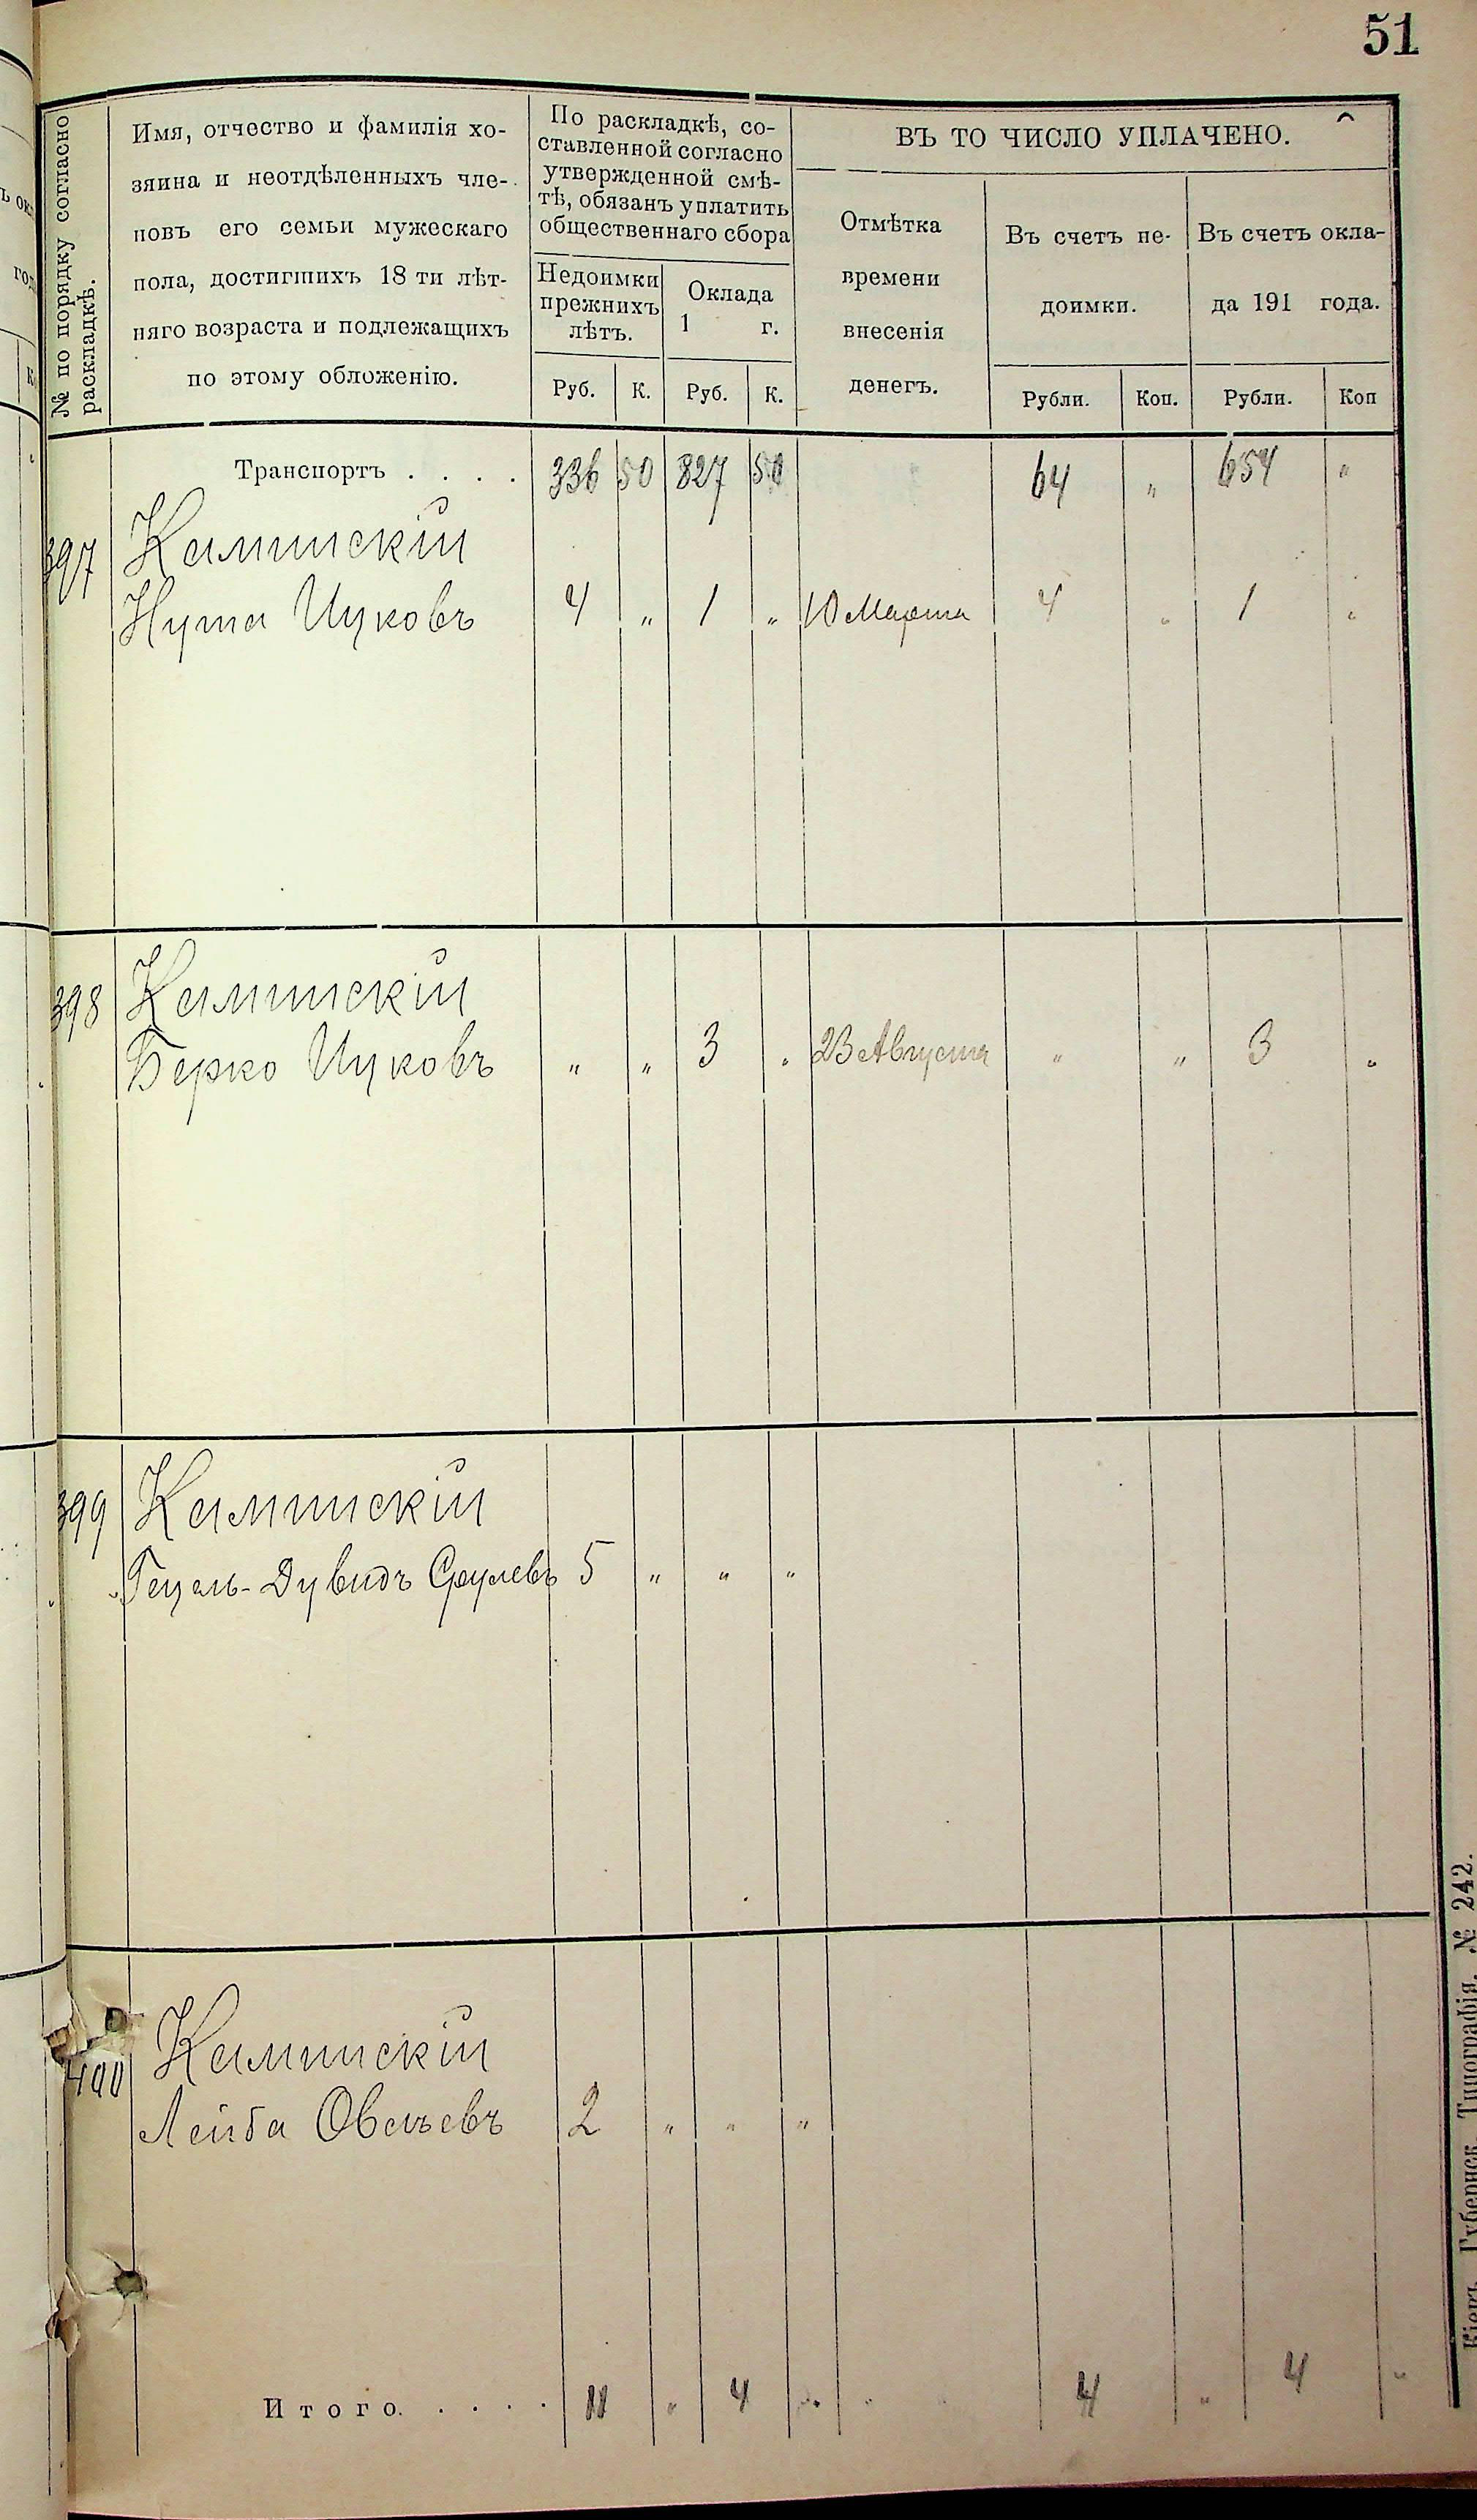 51
№ по порядку согласно
раскладкѣ.
Имя, отчество и фамилія хо-
зяина и неотдѣленныхъ чле-
новъ его семьи мужескаго
пола, достигшихъ 18 ти лѣт-
няго возраста и подлежащихъ
по этому обложенію.
По раскладкѣ, со-
ставленной согласно
утвержденной смѣ-
тѣ, обязанъ уплатить
общественнаго сбора
Недоимки
прежнихъ
лѣтъ.
Оклада
1 г.
Руб. К. Руб. К.
ВЪ ТО ЧИСЛО УПЛАЧЕНО.
Отмѣтка
времени
внесенія
денегъ.
Въ счетъ не-
доимки.
Въ счетъ окла-
да 191 года.
Рубли. Коп. Рубли. Коп
Транспортъ . . . . 336 50 827 50 64 „ 654 „
397 Каминскій
Нута Ицковъ 4 „ 1 „ 10 Марта 4 „ 1 „
398 Каминскій
Берко Ицковъ „ „ 3 „ 23 Августа „ „ 3 „
399 Каминскій
Гецель-Дувидъ Срулевъ 5 „ „ „
400 Каминскій
Лейба Овсѣевъ 2 „ „ „
Итого. . . . . 11 „ 4 „ 4 „ 4 „
Кіевъ. Губернск. Типографія. № 242.